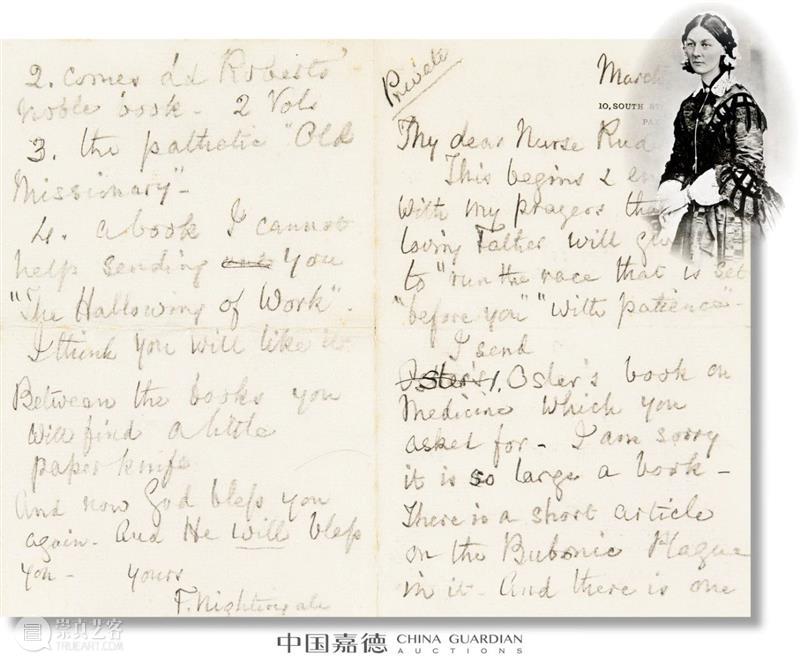 2. comes Ld Roberts'
noble book - 2 Vols
3. the pathetic "Old
Missionary" -
4. a book I cannot
help sending you
"The Hallowing of Work" -
I think you will like it
Between the books you
will find a little
paper knife
And now God bless you
again - And He will bless
you - yours
F. Nightingale
Private
March
10, SOUTH
PA
My dear Nurse
This begins &
With my prayers
loving Father will
to "run the race that is set
"before you" "with patience" -
I send
1. Osler's book on
Medicine which you
asked for - I am sorry
it is so large a book -
There is a short article
on the Bubonic Plague
in it - And there is one
崇真艺客
TRUEART.COM
中国嘉德 CHINA GUARDIAN
AUCTIONS